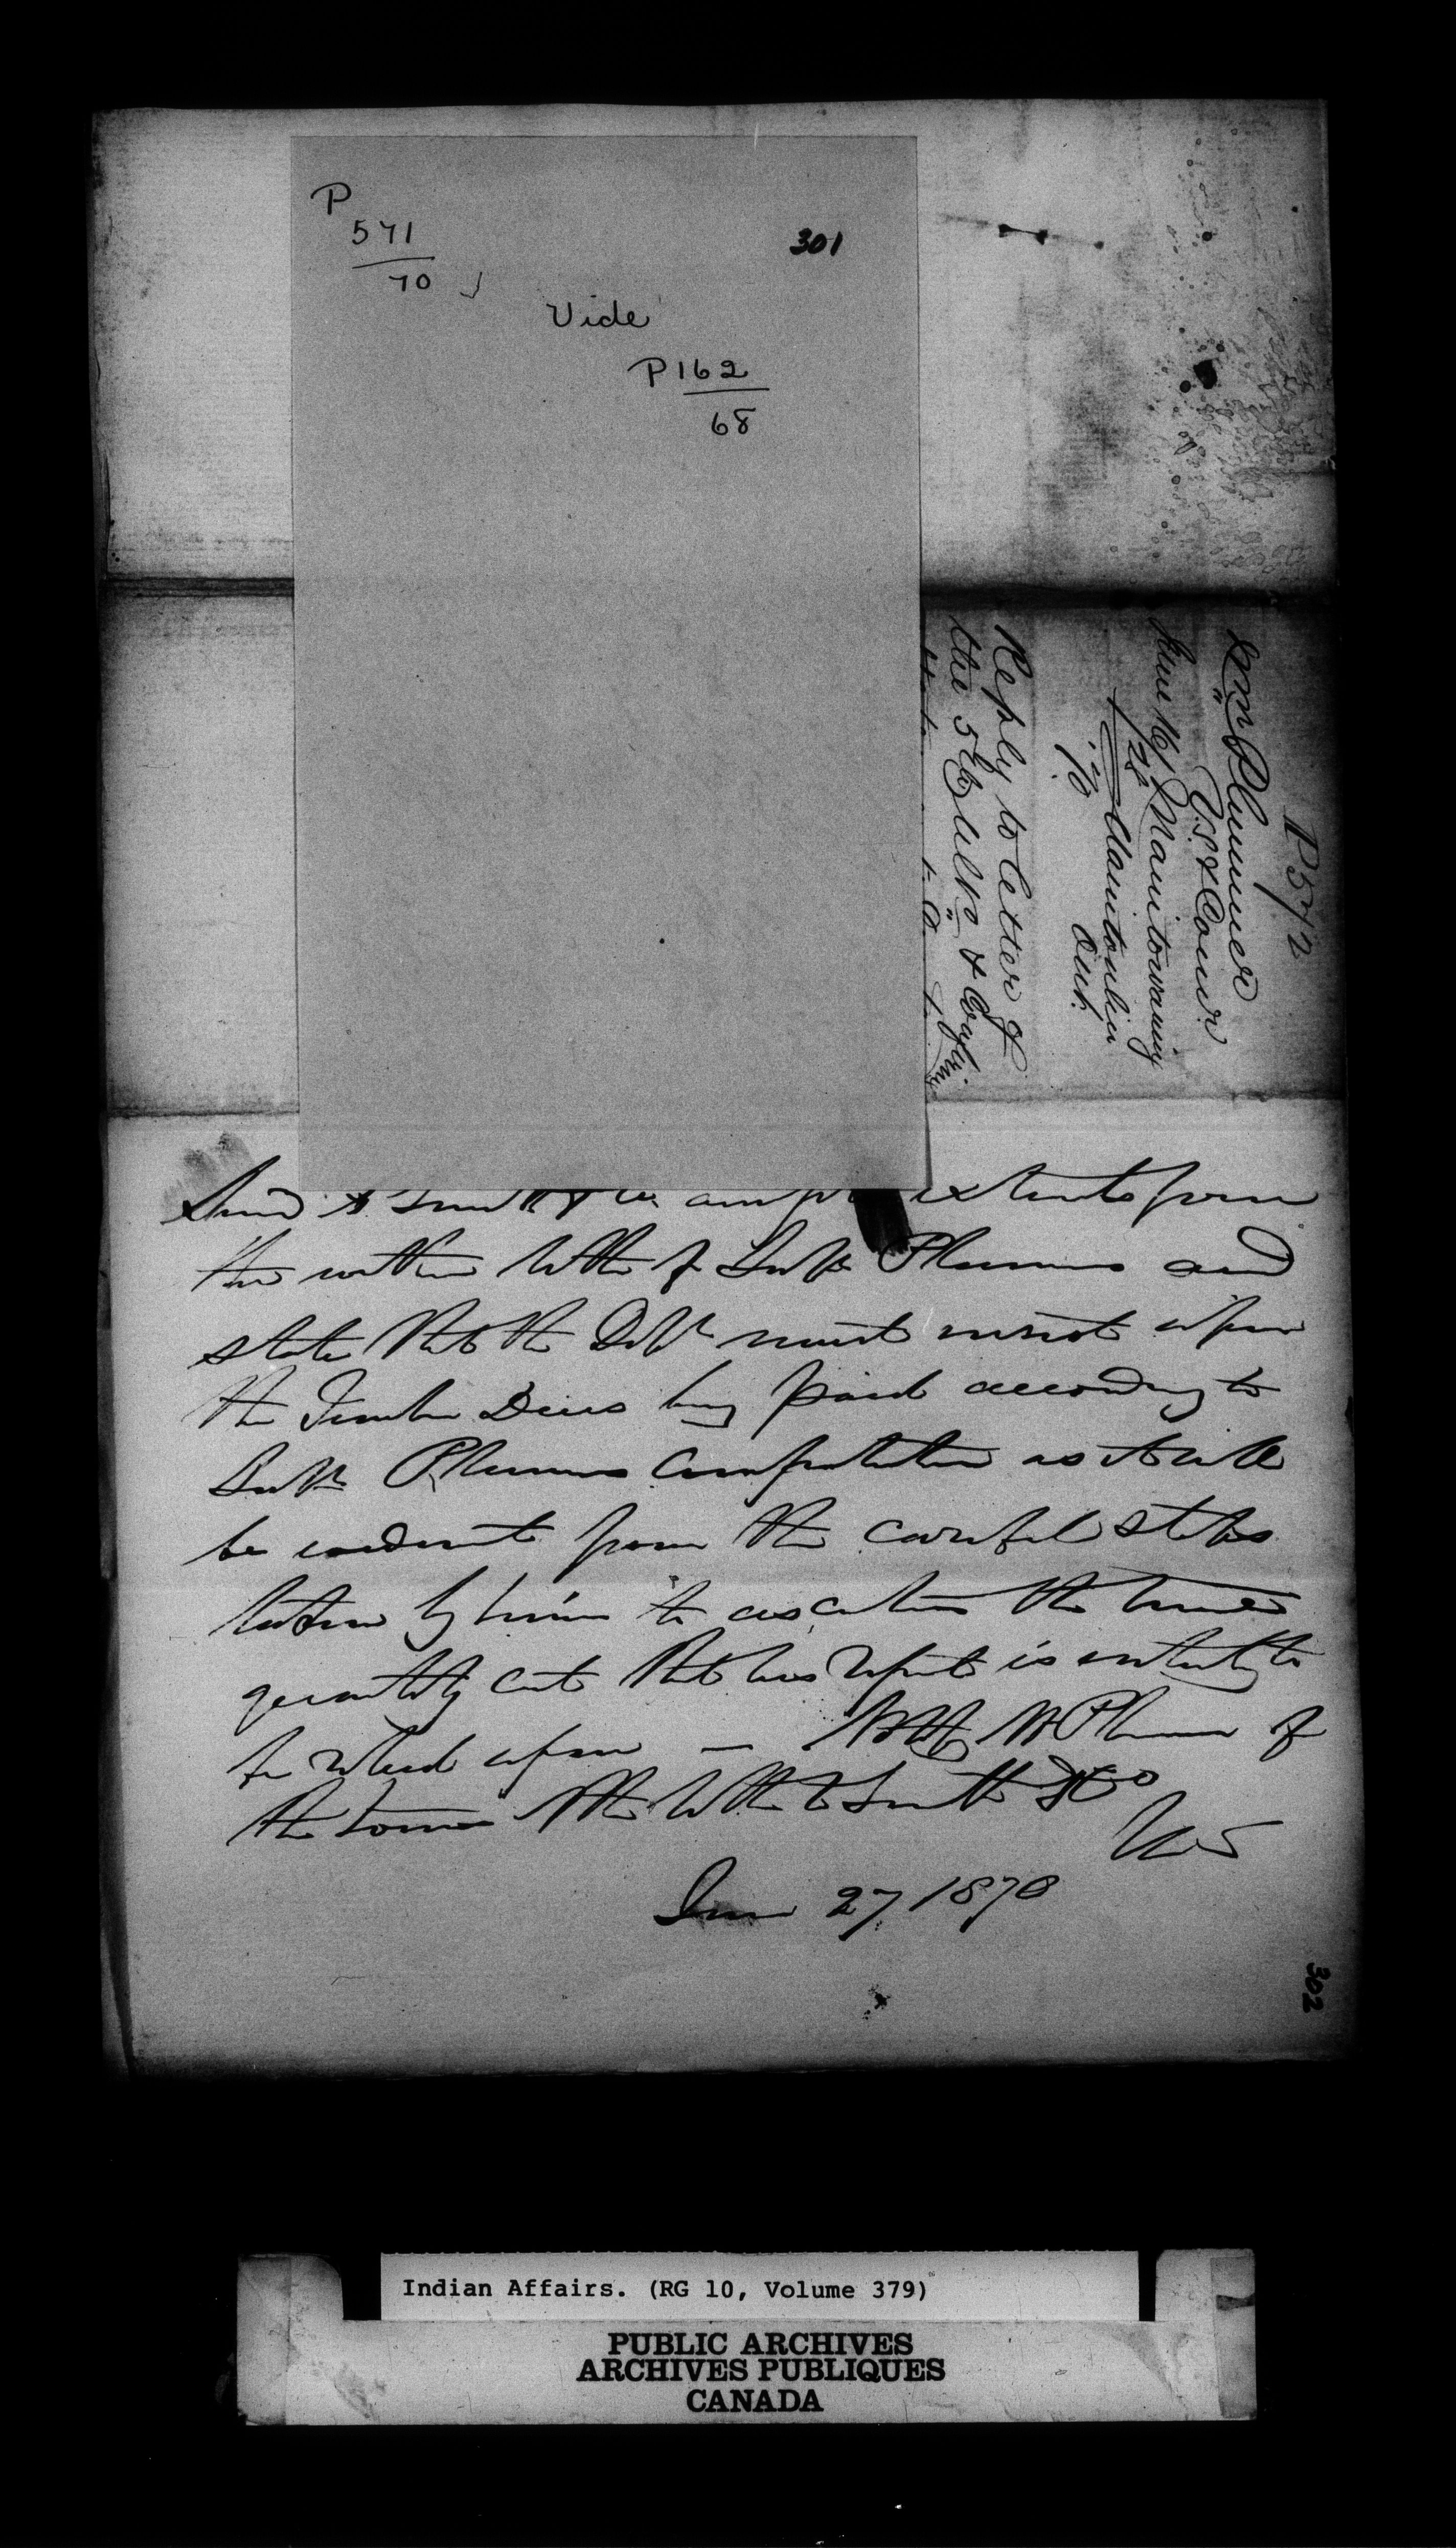 P
571
70
301
Vide
P162
68
P572
Wm Plummer
V.S. & Comr
June 16, Manitowaning
Manitoulin
Ont.
Reply to letter of
the 5th
Send to Smith & Co. extracts from
the within letter of Supt Plummer and
state that the Dept must insist upon
the Timber Dues being paid according to
Supt Plummers Computation as it will
be evident from the careful steps
taken by him to ascertain the true
quantity cut that his report is entirely to
be relied upon — Notify Mr Plummer of
the tenor of the letter to Smith & Co
June 27 1870
302
Indian Affairs. (RG 10, Volume 379)
PUBLIC ARCHIVES
ARCHIVES PUBLIQUES
CANADA